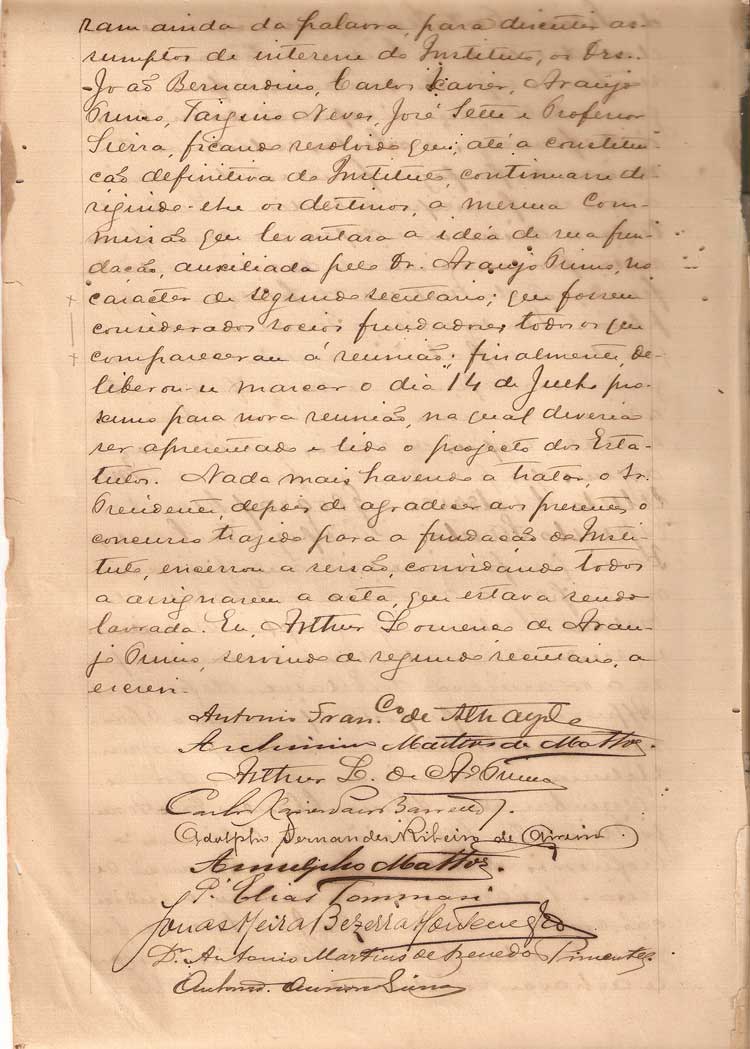 ram ainda da palavra, para discutir as-
sumptos de interesse do Instituto, os Drs.
João Bernardino, Carlos Xavier, Araujo
Primo, Targino Neves, José Sette e Professor
Sierra, ficando resolvido que, até a constitui-
ção definitiva do Instituto, continuasse di-
rigindo-lhe os destinos, a mesma Com-
missão que levantara a idéa de sua fun-
dação, auxiliada pelo Dr. Araujo Primo, no
caracter de segundo secretario; que fossem
considerados socios fundadores todos os que
compareceram á reunião; finalmente, de-
liberou-se marcar o dia 14 de Julho pro-
ximo para nova reunião, na qual deveria
ser apresentado e lido o projecto dos Esta-
tutos. Nada mais havendo a tratar, o Sr.
Presidente, depois de agradecer aos presentes o
concurso trazido para a fundação do Insti-
tuto, encerrou a sessão, convidando todos
a assignarem a acta, que estava sendo
lavrada. Eu, Arthur Lourenço de Arau-
jo Primo, servindo de segundo secretario, a
escrevi.
Antonio Fran.co de Athayde
Archimimo Martins de Mattos.
Arthur L. de Ao Primo
Carlos Xavier Paes Barretto.
Adolpho Fernandes Ribeiro de
Arnulpho Mattos.
P.e Elias Tommasi
Jonas Meira Bezerra Montenegro
Dr. Antonio Martins de Azevedo Pimentel.
Antonio Sierra